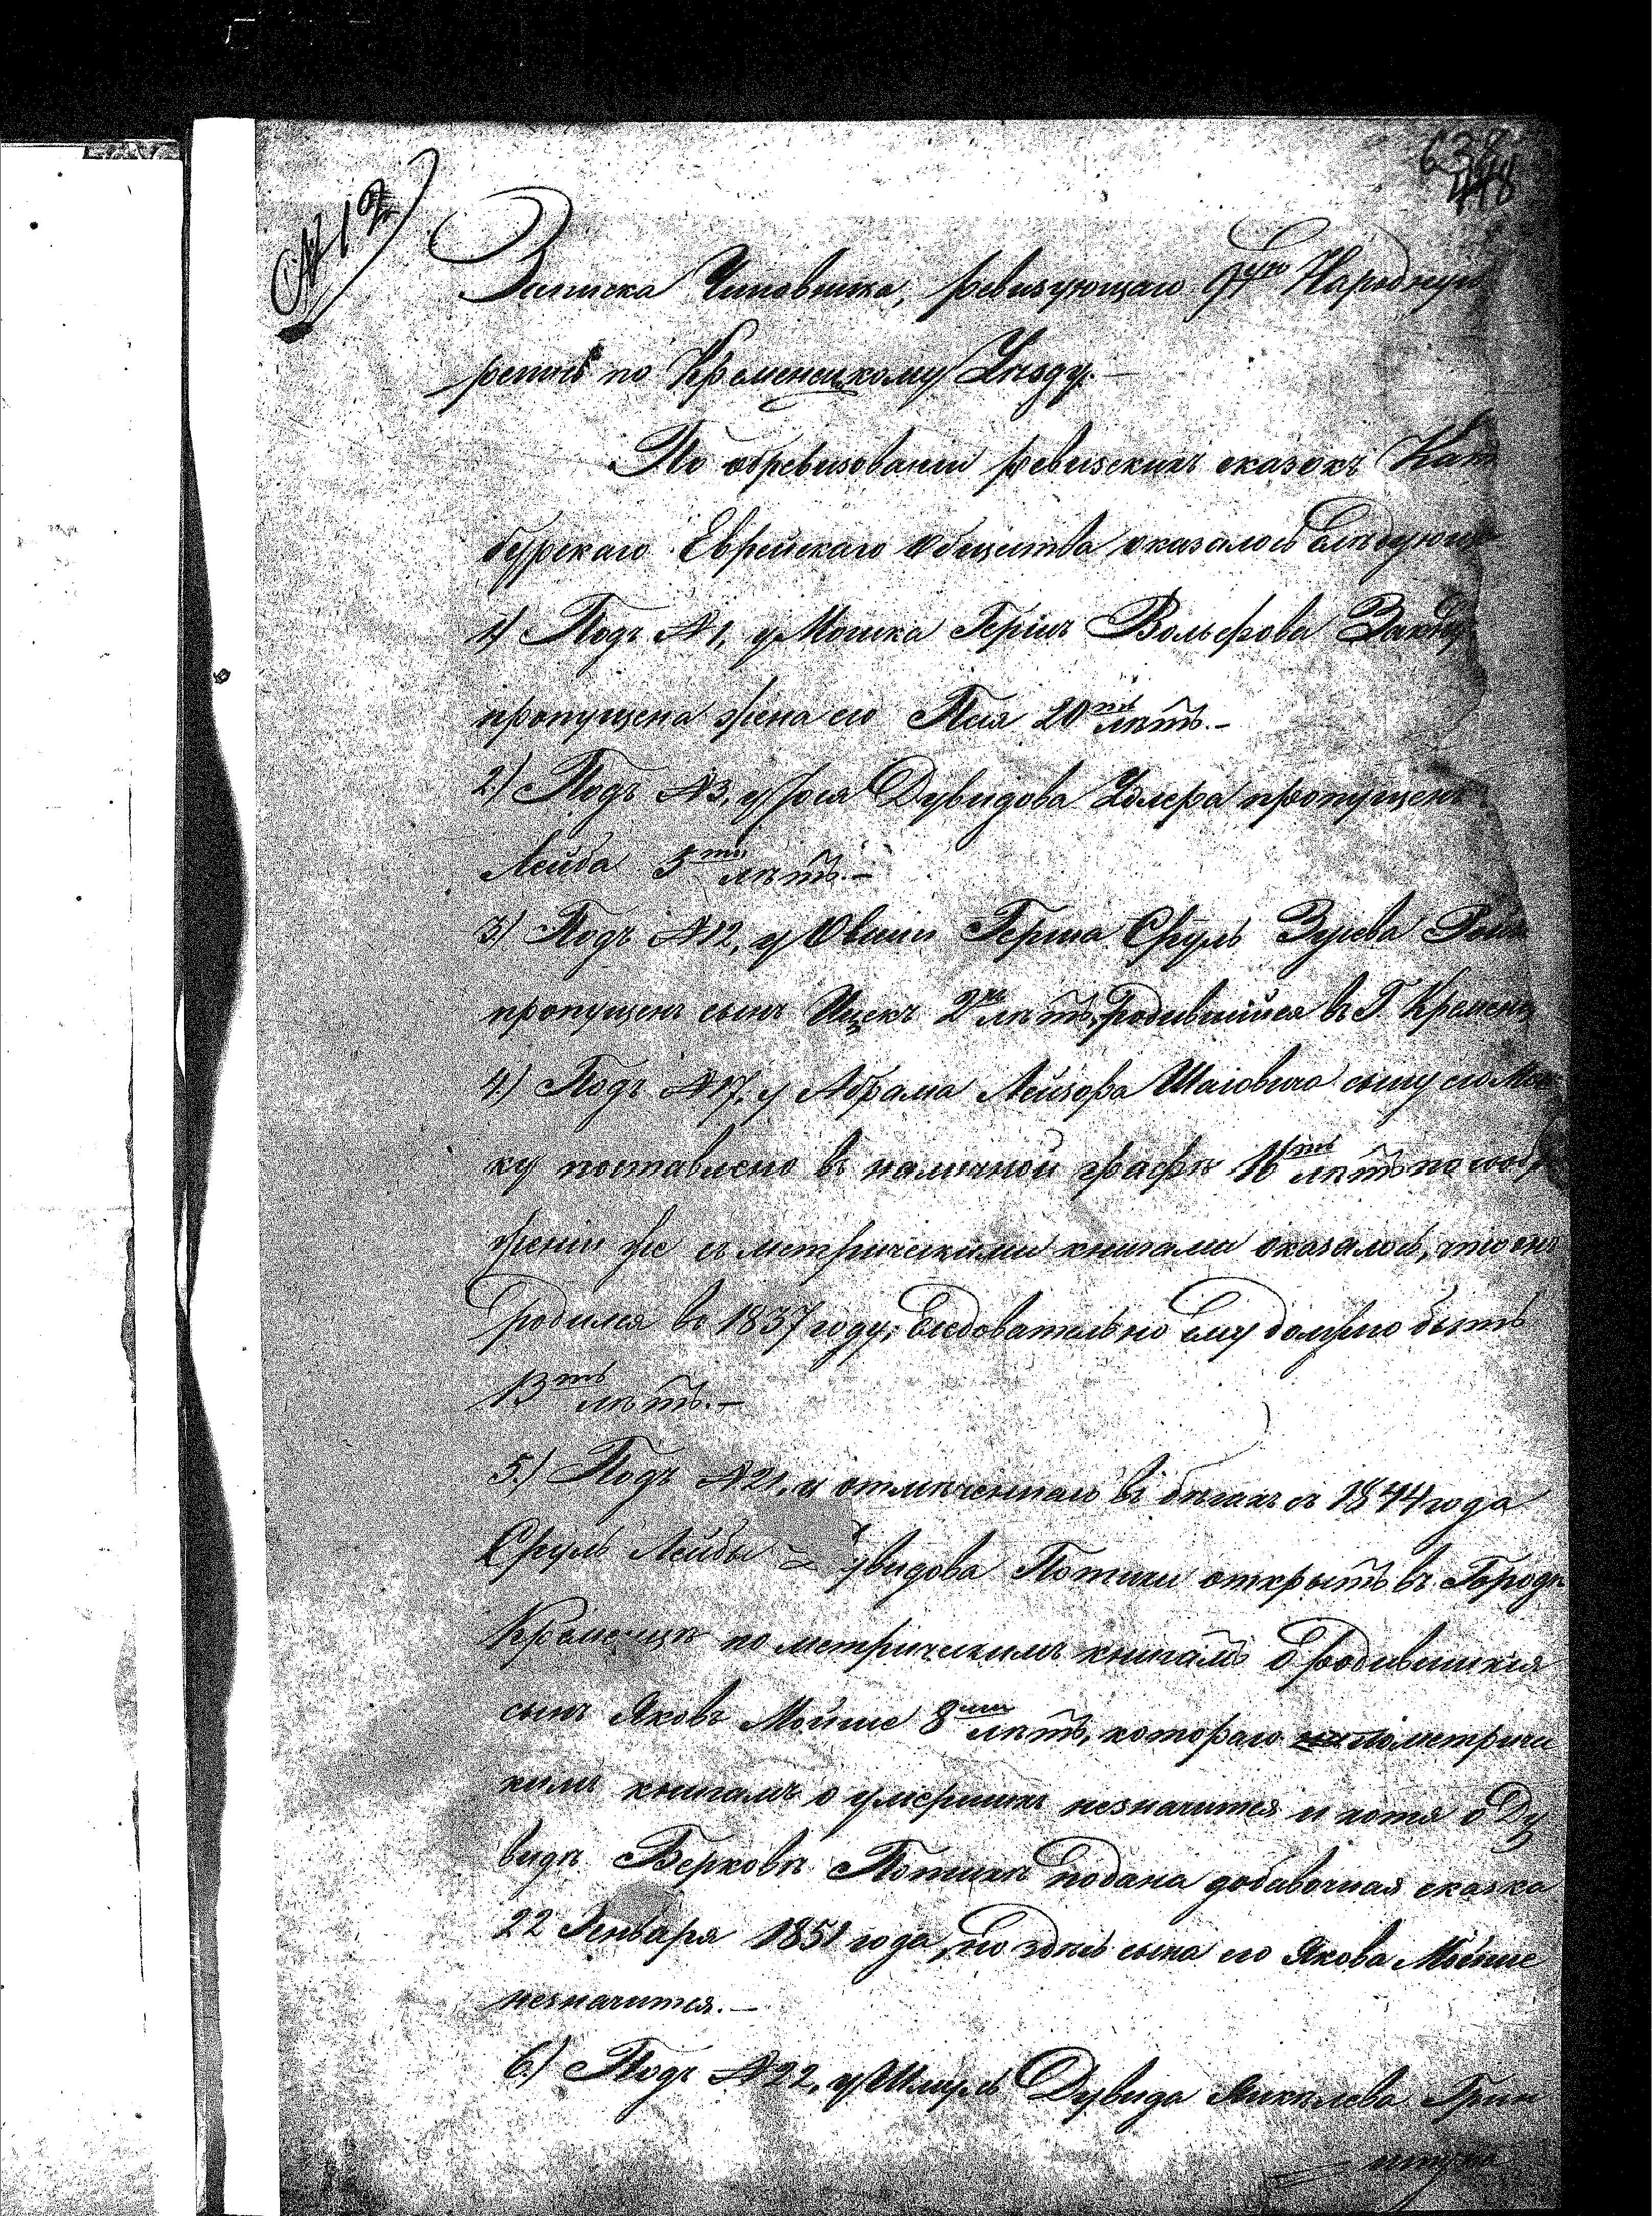 638
448
№ 12
Записка Чиновника, ревизующаго 9ую Народную
репись по Кременецкому Уезду.—
По обревизовании ревизских сказокъ Кат
бурскаго Еврейскаго Общества оказалось следующ
1) Подъ №1, у Мошка Герша Вольфова
пропущена жена его Песя 20ть летъ.—
2.) Подъ №3, у Іося Дувидова пропущенъ
Лейба 5ть летъ.—
3) Подъ №12, у Овши Герша Сруль Зусева
пропущенъ сынъ Ицекъ 2хъ летъ, родившійся въ Г. Кременц
4) Подъ №17, у Абрама Лейзора Шаіовича сыну его Мош
ку поставлено въ наличной графѣ 16ть лѣтъ по сообр
женіи же съ метрическими книгами оказалось, что онъ
родился въ 1837 году, следовательно ему должно быть
13ть лѣтъ.—
5.) Подъ №21, у отмѣченнаго въ бѣгахъ съ 1844 года
Сруль Лейбы увидова Потихи открытъ въ Городѣ
Кременцѣ по метрическимъ книгамъ о родившихся
сынъ Яковъ Мойше 8ми лѣтъ, котораго по метриче
кимъ книгамъ о умершихъ незначится и хотя о Ду
видѣ Берковѣ Потихѣ подана добавочная сказка
22 Генваря 1851 года, но здѣсь сына его Якова Мойше
незначится.—
6.) Подъ №22, у Шмуль Дувида Янкелева Грин